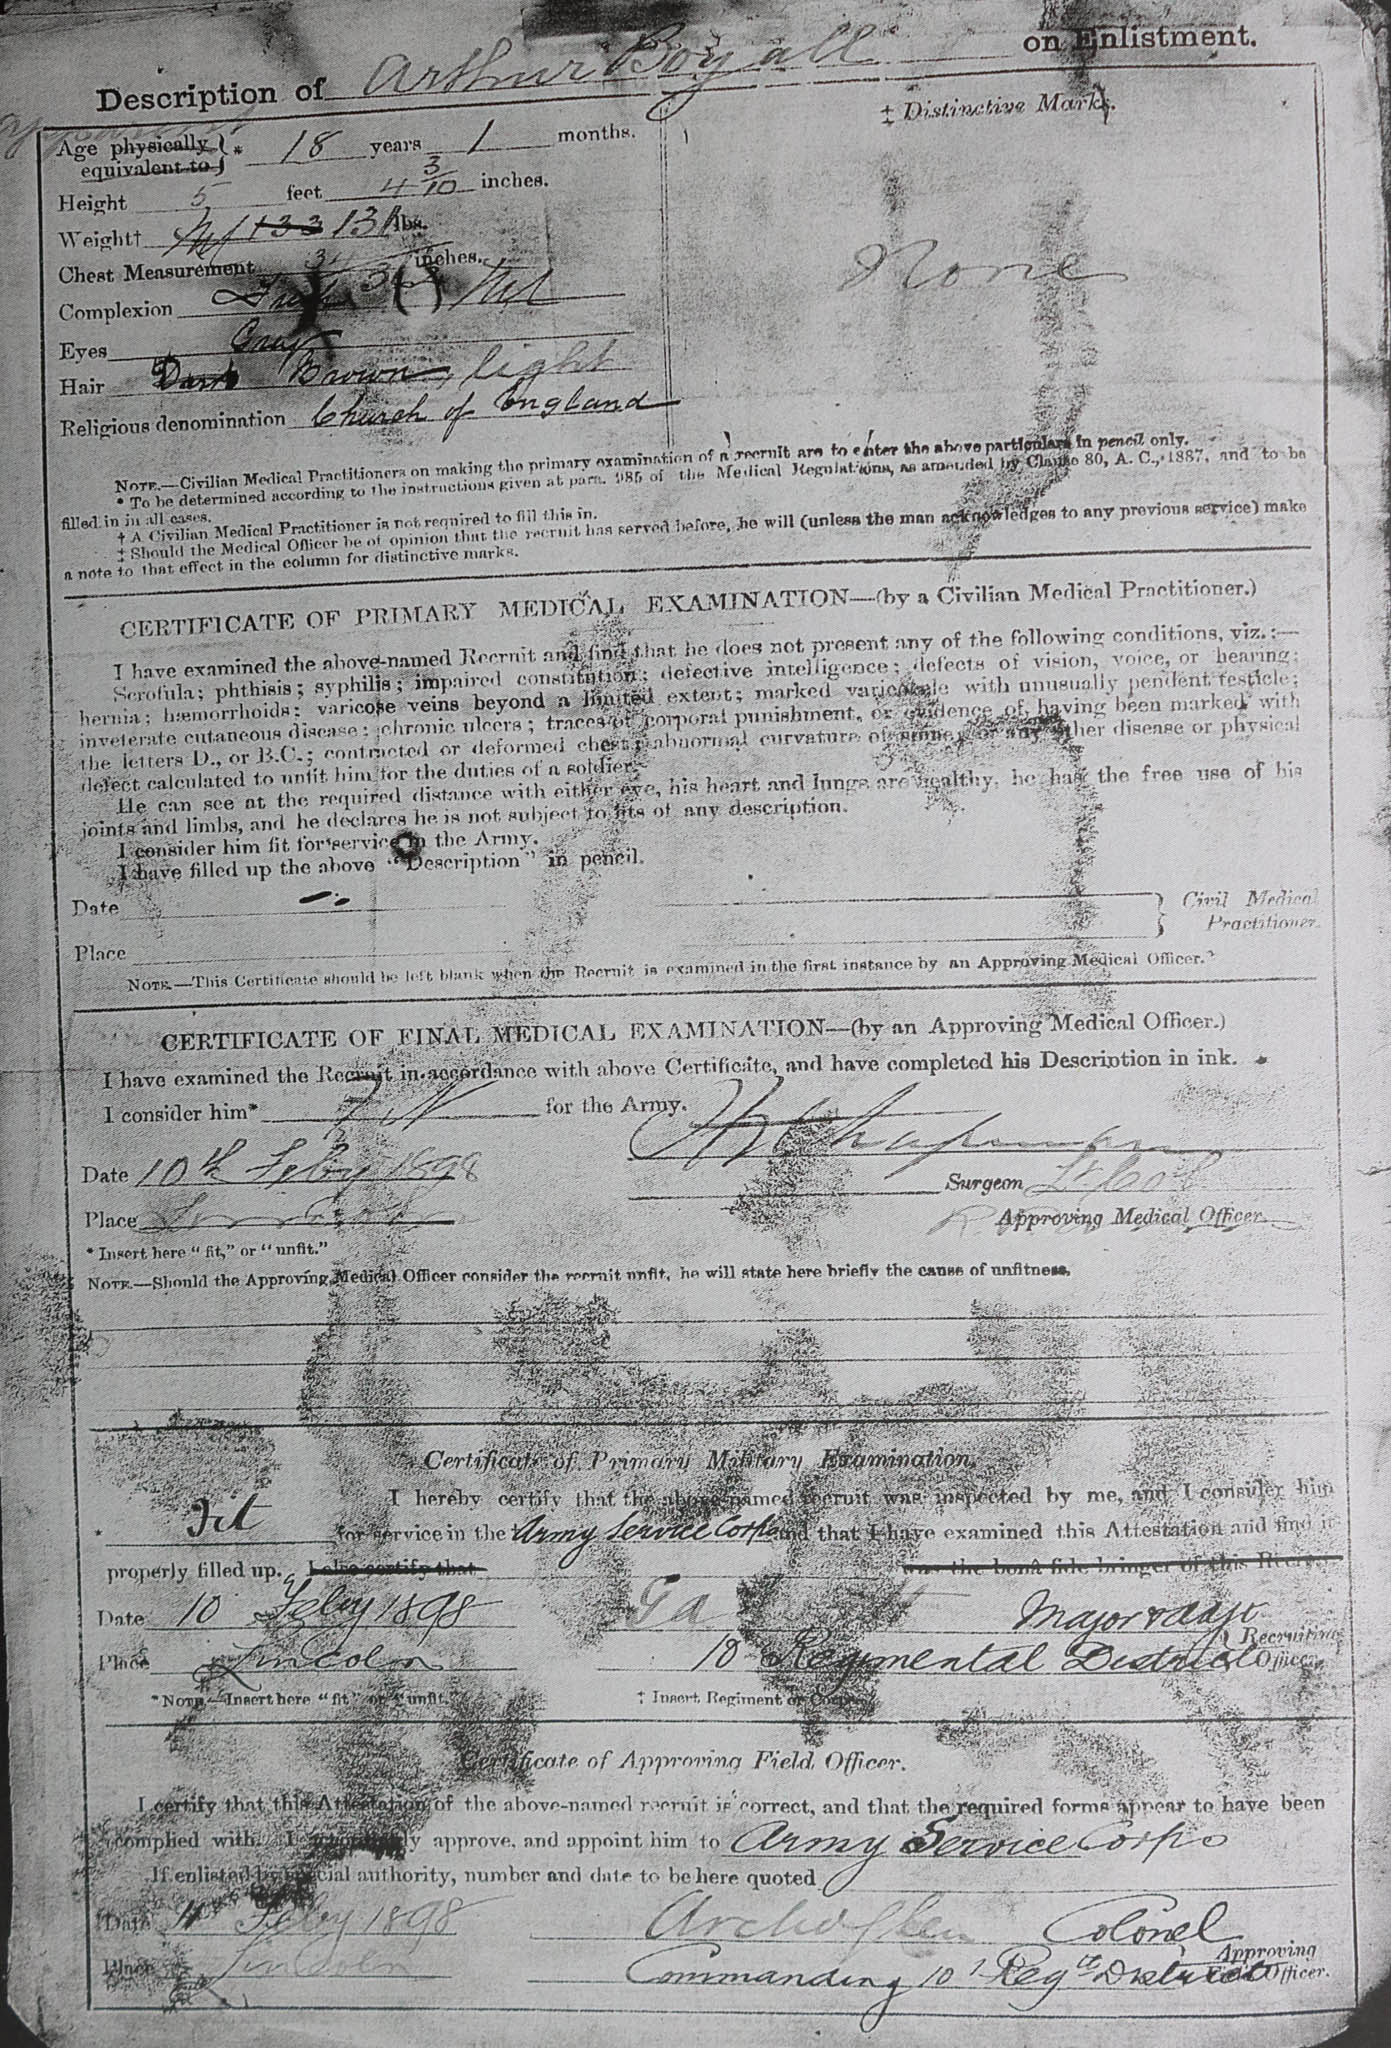 Description of Arthur Boyall on Enlistment.
Age physically equivalent to * 18 years 1 months.
‡ Distinctive Marks.
Height 5 feet 4 3/10 inches.
Weight† 133 131 lbs.
Chest Measurement inches.
None
Complexion Fresh
Eyes Grey
Hair Dark Brown, light
Religious denomination Church of England
NOTE.—Civilian Medical Practitioners on making the primary examination of a recruit are to enter the above particulars in pencil only.
* To be determined according to the instructions given at para. 985 of the Medical Regulations, as amended by Clause 80, A. C., 1887, and to be
filled in in all cases.
† A Civilian Medical Practitioner is not required to fill this in.
‡ Should the Medical Officer be of opinion that the recruit has served before, he will (unless the man acknowledges to any previous service) make
a note to that effect in the column for distinctive marks.
CERTIFICATE OF PRIMARY MEDICAL EXAMINATION—(by a Civilian Medical Practitioner.)
I have examined the above-named Recruit and find that he does not present any of the following conditions, viz.:—
Scrofula; phthisis; syphilis; impaired constitution; defective intelligence; defects of vision, voice, or hearing;
hernia; hæmorrhoids; varicose veins beyond a limited extent; marked varicocele with unusually pendent testicle;
inveterate cutaneous disease; chronic ulcers; traces of corporal punishment, or evidence of having been marked with
the letters D., or B.C.; contracted or deformed chest; abnormal curvature of spine; or any other disease or physical
defect calculated to unfit him for the duties of a soldier.
He can see at the required distance with either eye, his heart and lungs are healthy, he has the free use of his
joints and limbs, and he declares he is not subject to fits of any description.
I consider him fit for service in the Army.
I have filled up the above "Description" in pencil.
Date
Civil Medical
Practitioner.
Place
NOTE.—This Certificate should be left blank when the Recruit is examined in the first instance by an Approving Medical Officer.
CERTIFICATE OF FINAL MEDICAL EXAMINATION—(by an Approving Medical Officer.)
I have examined the Recruit in accordance with above Certificate, and have completed his Description in ink.
I consider him* fit for the Army.
Chapman
Date 10th Feby 1898
Surgeon Lt Col
Place Lincoln
Approving Medical Officer.
* Insert here "fit," or "unfit."
NOTE.—Should the Approving Medical Officer consider the recruit unfit, he will state here briefly the cause of unfitness.
Certificate of Primary Military Examination.
I hereby certify that the above-named recruit was inspected by me, and I consider him
* Fit for service in the Army Service Corps and that I have examined this Attestation and find it
properly filled up. I also certify that was the bonâ fide bringer of this Recruit.
Date 10 Feby 1898 Major & Adjt
Recruiting
Place Lincoln 10 Regimental District Officer.
* NOTE.—Insert here "fit" or "unfit." † Insert Regiment or Corps.
Certificate of Approving Field Officer.
I certify that this Attestation of the above-named recruit is correct, and that the required forms appear to have been
complied with. I accordingly approve, and appoint him to Army Service Corps
If enlisted by special authority, number and date to be here quoted
Date 11 Feby 1898 Colonel
Approving
Place Lincoln Commanding 10 Regtl District Field Officer.